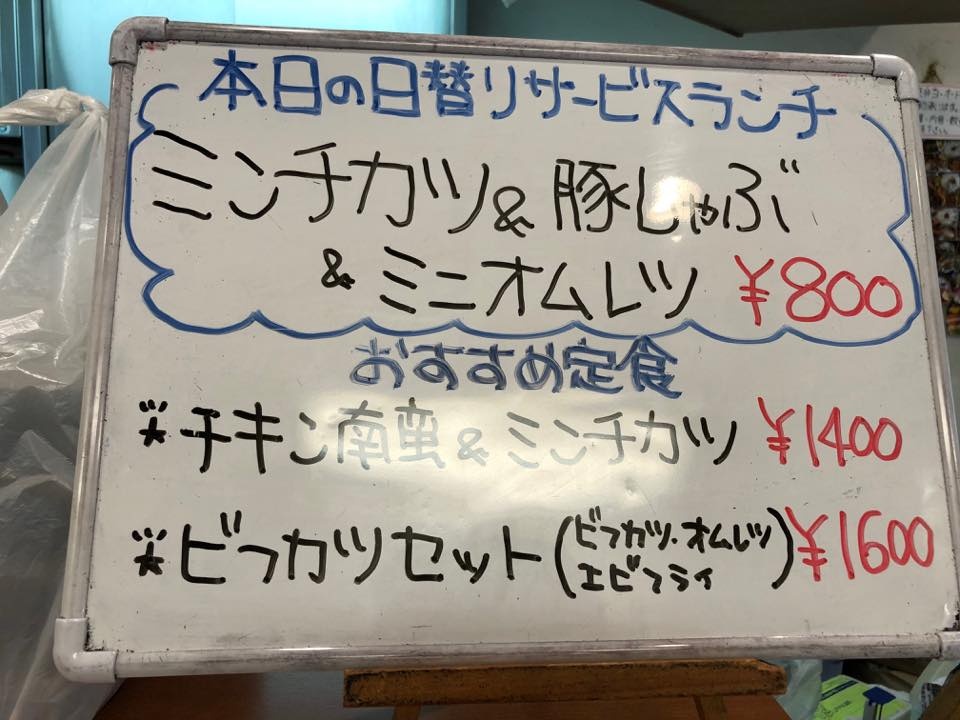 本日の日替りサービスランチ
ミンチカツ&豚しゃぶ
&ミニオムレツ ¥800
おすすめ定食
※チキン南蛮&ミンチカツ ¥1400
※ビフカツセット(ビフカツ・オムレツ ¥1600
エビフライ)